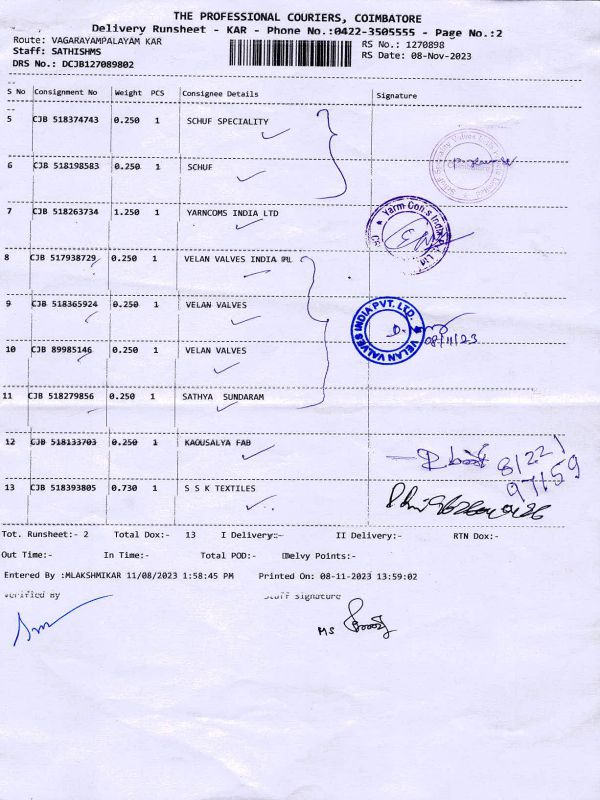 THE PROFESSIONAL COURIERS, COIMBATORE
Delivery Runsheet - KAR - Phone No.:0422-3505555 - Page No.:2
Route: VAGARAYAMPALAYAM KAR
RS No.: 1270898
Staff: SATHISHMS
RS Date: 08-Nov-2023
DRS No.: DCJB127089802
S No Consignment No Weight PCS Consignee Details Signature
5 CJB 518374743 0.250 1 SCHUF SPECIALITY
6 CJB 518198583 0.250 1 SCHUF
7 CJB 518263734 1.250 1 YARNCOMS INDIA LTD
8 CJB 517938729 0.250 1 VELAN VALVES INDIA
9 CJB 518365924 0.250 1 VELAN VALVES
VELAN VALVES INDIA PVT. LTD.
08/11/23
10 CJB 89985146 0.250 1 VELAN VALVES
11 CJB 518279856 0.250 1 SATHYA SUNDARAM
12 CJB 518133703 0.250 1 KAOUSALYA FAB
81221
97159
13 CJB 518393805 0.730 1 S S K TEXTILES
Tot. Runsheet:- 2 Total Dox:- 13 I Delivery:- II Delivery:- RTN Dox:-
Out Time:- In Time:- Total POD:- Delvy Points:-
Entered By :MLAKSHMIKAR 11/08/2023 1:58:45 PM Printed On: 08-11-2023 13:59:02
Verified By Staff Signature
MS